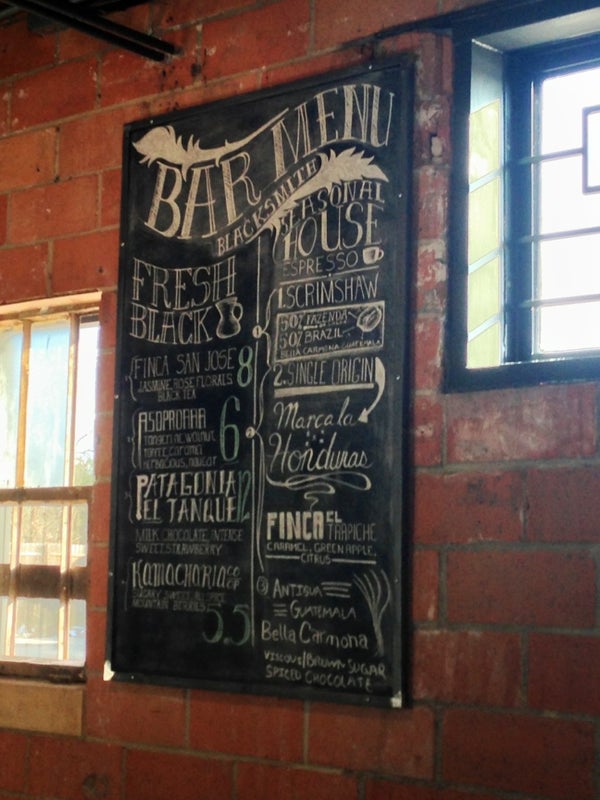 BAR MENU
BLACKSMITH
FRESH
BLACK
FINCA SAN JOSE 8
JASMINE, ROSE, FLORALS,
BLACK TEA
ASOPROARA 6
tangerine, walnut
toffee, caramel
herbacious, nougat
PATAGONIA
EL TANQUE 12
MILK CHOCOLATE, INTENSE
SWEET STRAWBERRY
KAMACHARIA
SUGARY SWEET, ALLSPICE
MOUNTAIN BERRIES 5.5
SEASONAL
HOUSE
ESPRESSO
1. SCRIMSHAW
50% FAZENDA
50% BRAZIL
BELLA CARMONA GUATEMALA
2. SINGLE ORIGIN
Marcala
Honduras
FINCA EL
TRAPICHE
CARAMEL, GREEN APPLE,
CITRUS
③ ANTIGUA
GUATEMALA
Bella Carmona
VISCOUS/BROWN SUGAR
SPICED CHOCOLATE